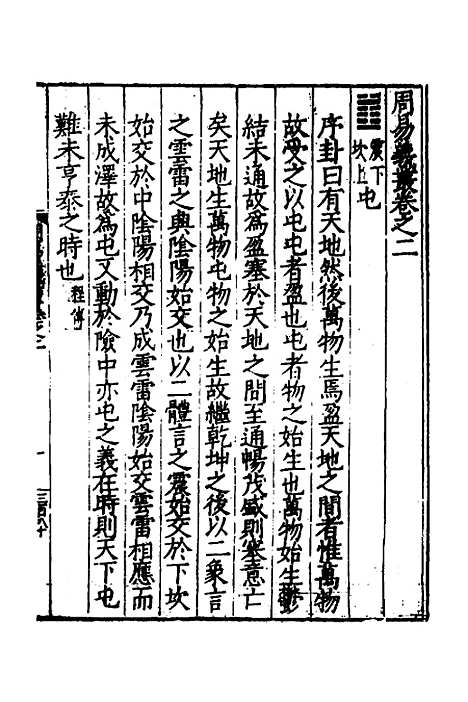 周易義叢卷之二
震下
坎上
屯
序卦曰有天地然後萬物生焉盈天地之間者惟萬物
故受之以屯屯者盈也屯者物之始生也萬物始生鬱
結未通故為盈塞於天地之間至通暢茂盛則塞意亡
矣天地生萬物屯物之始生故繼乾坤之後以二象言
之雲雷之興陰陽始交也以二體言之震始交於下坎
始交於中陰陽相交乃成雲雷陰陽始交雲雷相應而
未成澤故為屯又動於險中亦屯之義在時則天下屯
難未亨泰之時也程傳